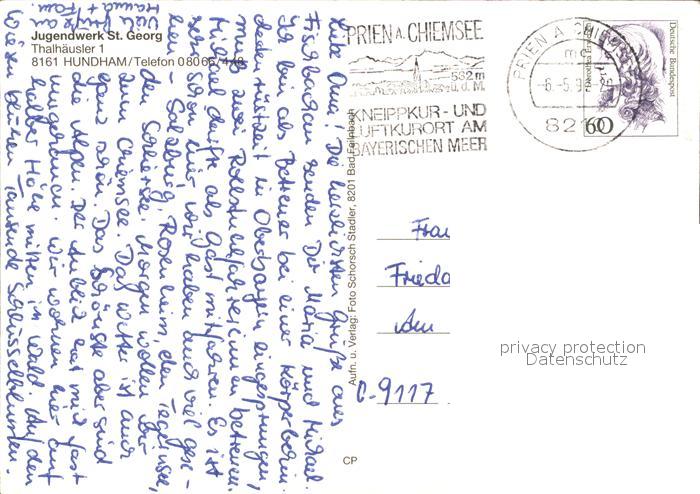 Jugendwerk St. Georg
Thalhäusler 1
8161 HUNDHAM/Telefon 08066/
Liebe Oma! Die herzlichsten Grüße aus
Fischbachau senden Dir Maria und Michael.
Ich bin als Betreuer bei einer Körperbehin-
dertenfreizeit in Oberbayern eingesprungen,
muß zwei Rollstuhlfahrerinnen betreuen.
Michael darf als Gast mitfahren. Es ist
sehr schön hier, wir haben schon viel gese-
hen - Salzburg, Rosenheim, den Tegernsee,
den Schliersee. Morgen wollen wir
zum Chiemsee. Das Wetter ist auch
ganz schön. Das Schönste aber sind
die Alpen. Der Anblick hat mich fast
umgerannt. Wir wohnen hier auf
halber Höhe mitten im Wald. Auf den
Wiesen blühen tausende Schlüsselblumen.
Viele Grüße an
Hanna + Fam.
Aufn. u. Verlag: Foto Schorsch Stadler, 8201 Bad Feilnbach
CP
PRIEN A. CHIEMSEE
532 m
ü. d. M.
KNEIPPKUR - UND
LUFTKURORT AM
BAYERISCHEN MEER
PRIEN A CHIEMSEE
-6.-5.9
8210
Deutsche Bundespost
60
Frau
Frieda
Am
O-9117
privacy protection
Datenschutz